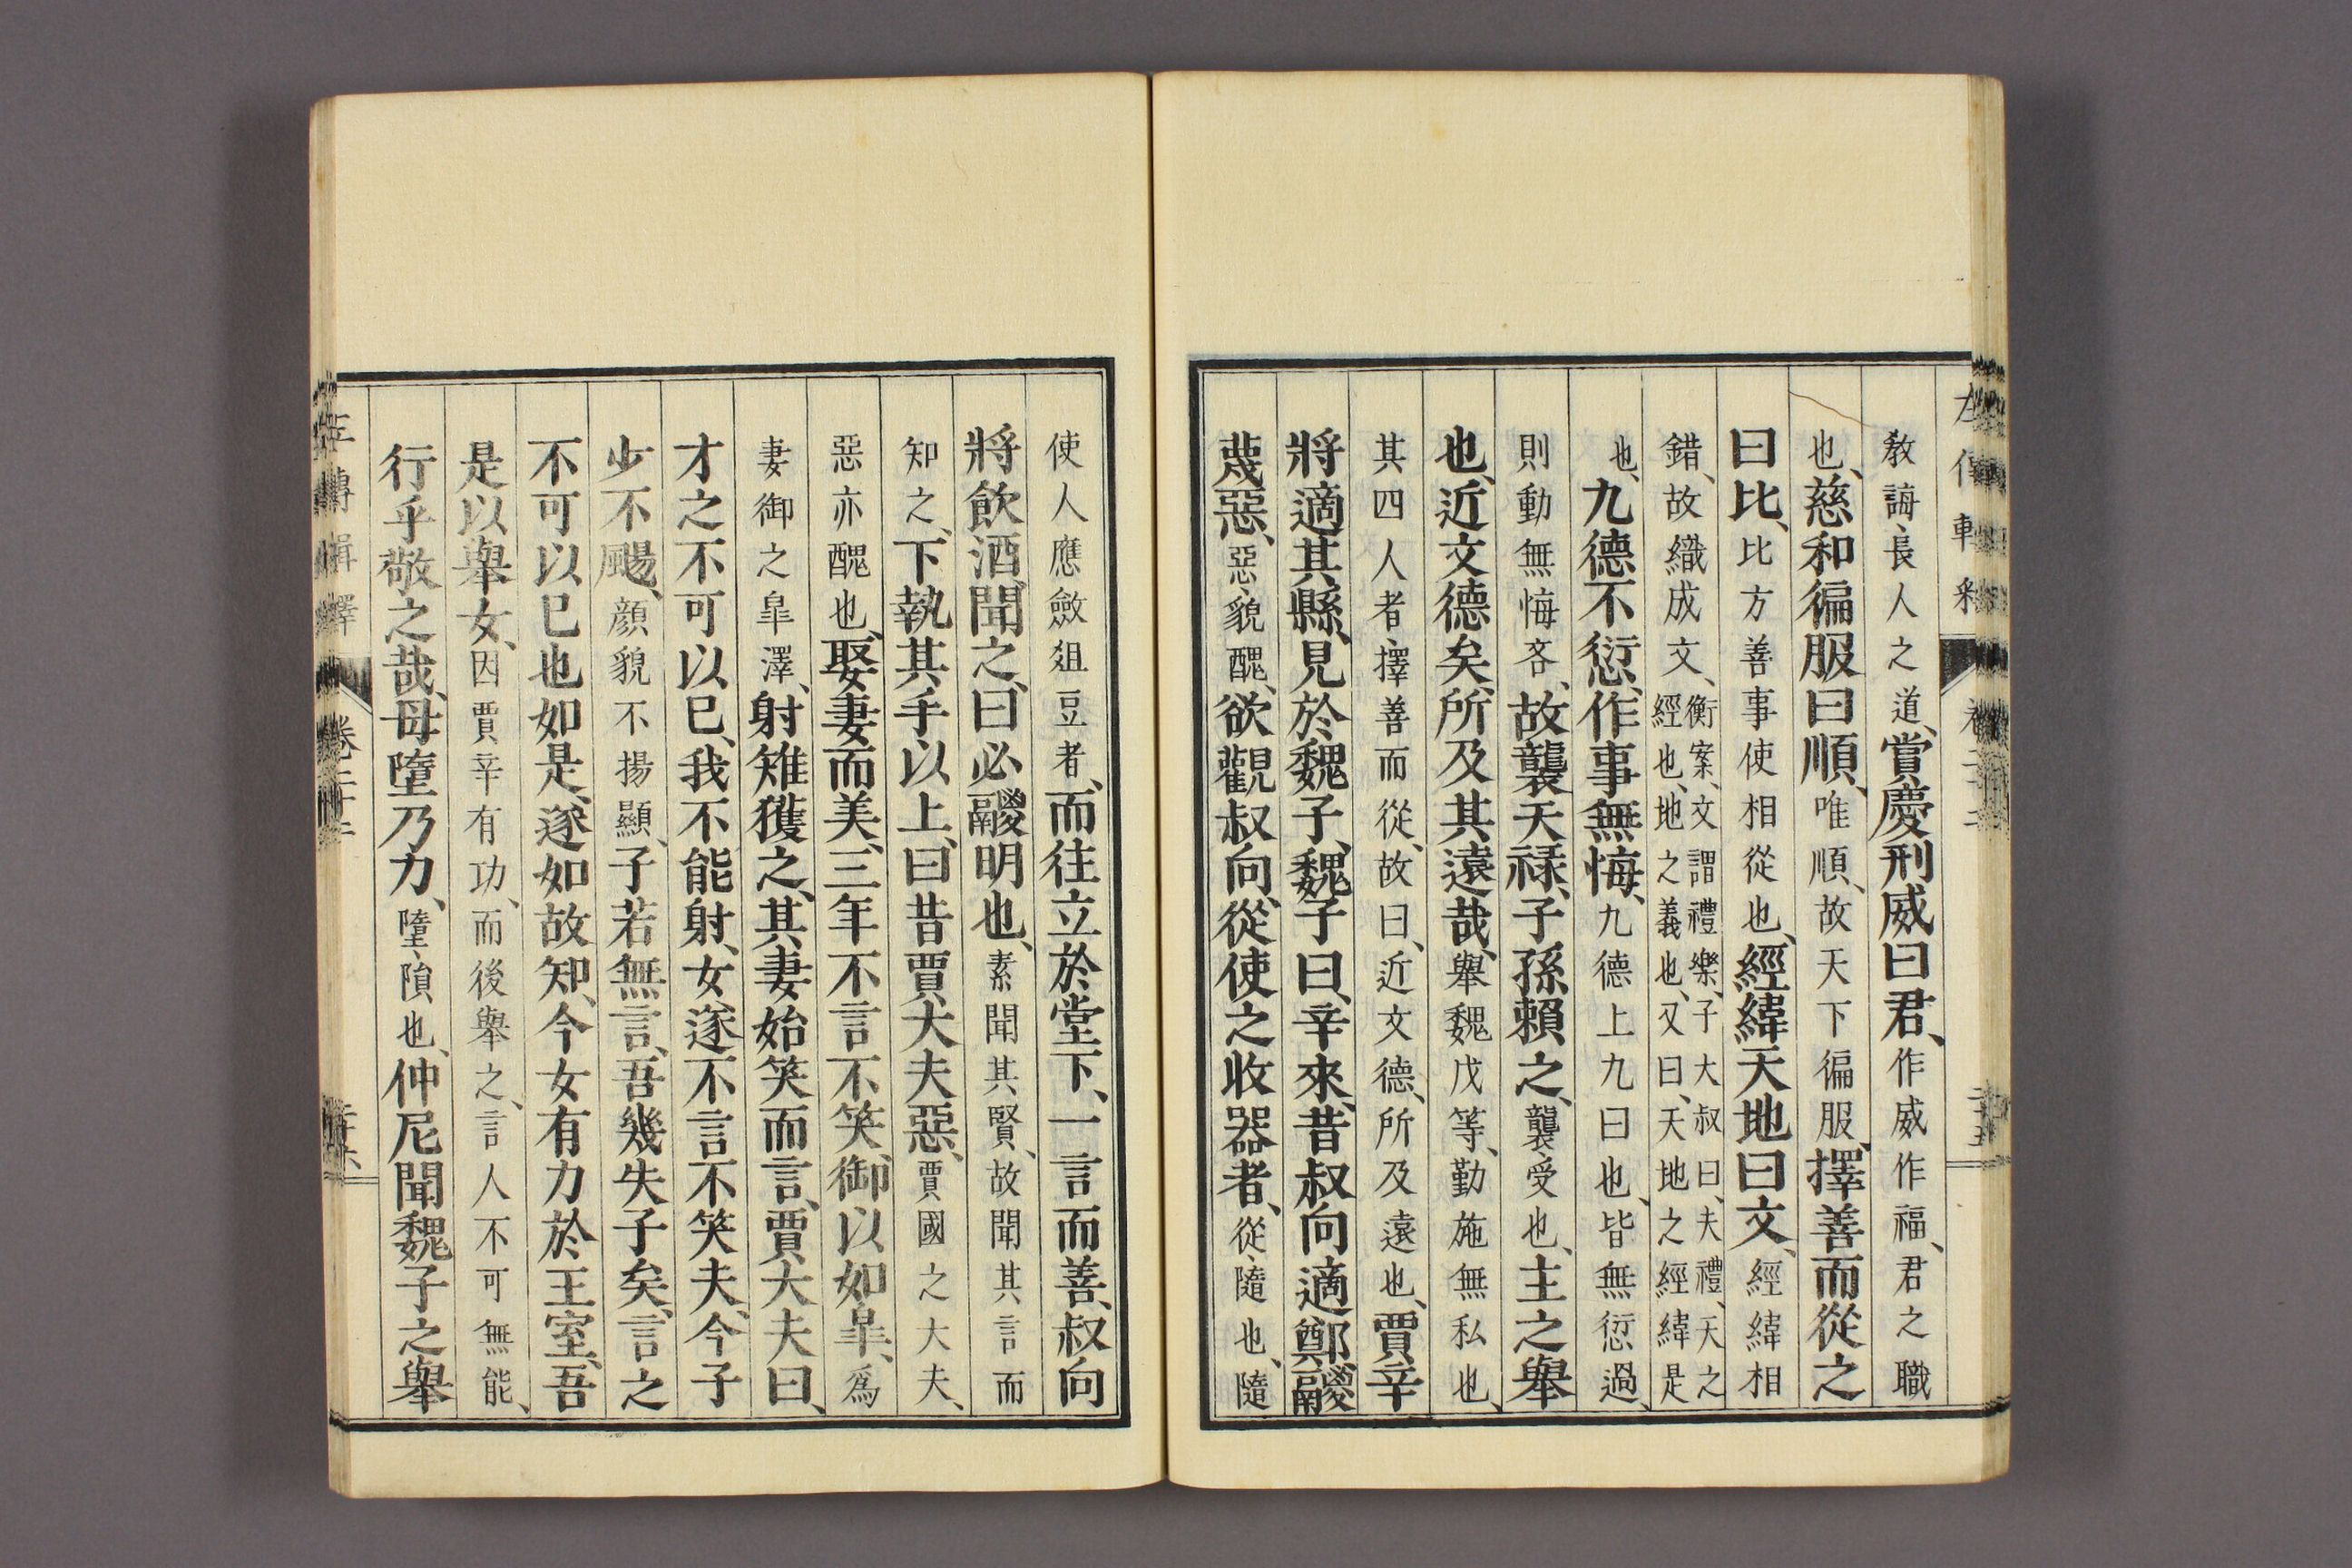 教誨、長人之道、賞慶刑威曰君、作威作福、君之職
也、慈和徧服曰順、唯順、故天下徧服、擇善而從之
曰比、比方善事使相從也、經緯天地曰文、經緯相
錯、故織成文、衡案、文謂禮樂、子大叔曰、夫禮、天之經也、地之義也、又曰、天地之經緯是
也、九德不愆、作事無悔、九德上九曰也、皆無愆過、
則動無悔吝、故襲天祿、子孫賴之、襲、受也、主之舉
也、近文德矣、所及其遠哉、舉魏戊等、勤施無私也、
其四人者、擇善而從、故曰、近文德、所及遠也、賈辛
將適其縣、見於魏子、魏子曰、辛來、昔叔向適鄭、鬷
蔑惡、惡、貌醜、欲觀叔向、從使之收器者、從、隨也、隨
使人應斂俎豆者、而往立於堂下、一言而善、叔向
將飲酒、聞之、曰必鬷明也、素聞其賢、故聞其言而
知之、下執其手以上、曰昔賈大夫惡、賈國之大夫、
惡亦醜也、娶妻而美、三年不言不笑、御以如皐、爲
妻御之皐澤、射雉獲之、其妻始笑而言、賈大夫曰、
才之不可以已、我不能射、女遂不言不笑夫、今子
少不颺、顔貌不揚顯、子若無言、吾幾失子矣、言之
不可以已也如是、遂如故知、今女有力於王室、吾
是以舉女、因賈辛有功、而後舉之、言人不可無能、
行乎、敬之哉、毋墮乃力、墮、隕也、仲尼聞魏子之舉